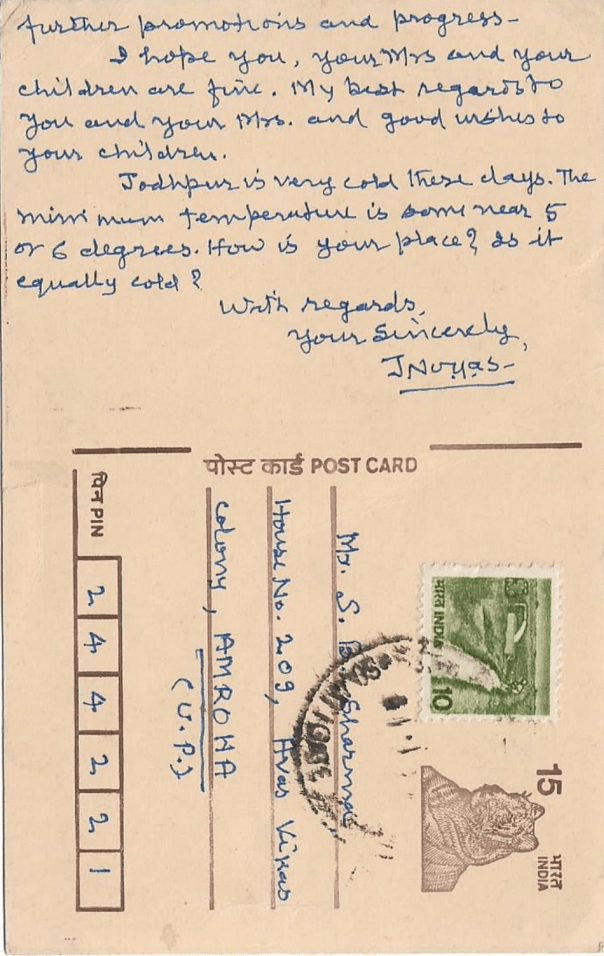 further promotions and progress-
I hope you, your Mrs and your
children are fine. My best regards to
you and your Mrs. and good wishes to
your children.
Jodhpur is very cold these days. The
minimum temperature is some near 5
or 6 degrees. How is your place? Is it
equally cold?
With regards,
Your Sincerely,
पोस्ट कार्ड POST CARD
Mr. S. Sharma
House No. 209, Avas Vikas
Colony, AMROHA
(U.P.)
पिन PIN
2 4 4 2 2 1
भारत INDIA
10
15
भारत
INDIA